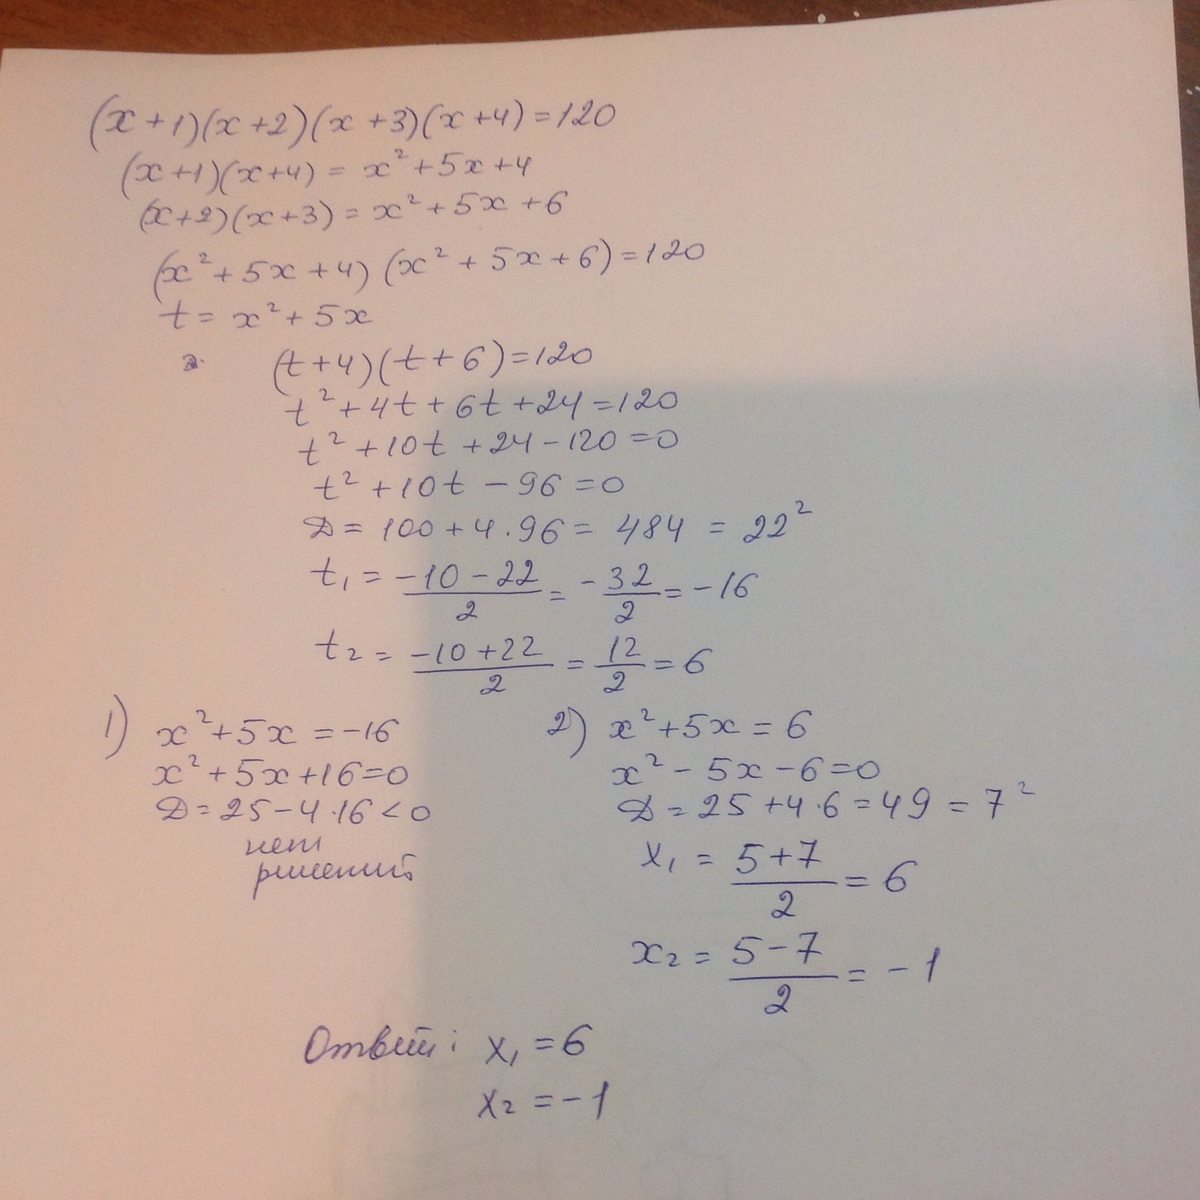 (x+1)(x+2)(x+3)(x+4)=120
(x+1)(x+4) = x²+5x+4
(x+2)(x+3) = x²+5x+6
(x²+5x+4)(x²+5x+6)=120
t = x²+5x
(t+4)(t+6)=120
t²+4t+6t+24=120
t²+10t+24-120=0
t²+10t-96=0
D = 100+4·96 = 484 = 22²
t₁ = (-10-22)/2 = -32/2 = -16
t₂ = (-10+22)/2 = 12/2 = 6
1) x²+5x=-16
x²+5x+16=0
D=25-4·16<0
нет
решений
2) x²+5x=6
x²-5x-6=0
D = 25+4·6=49=7²
x₁ = (5+7)/2 = 6
x₂ = (5-7)/2 = -1
Ответ: x₁=6
x₂=-1